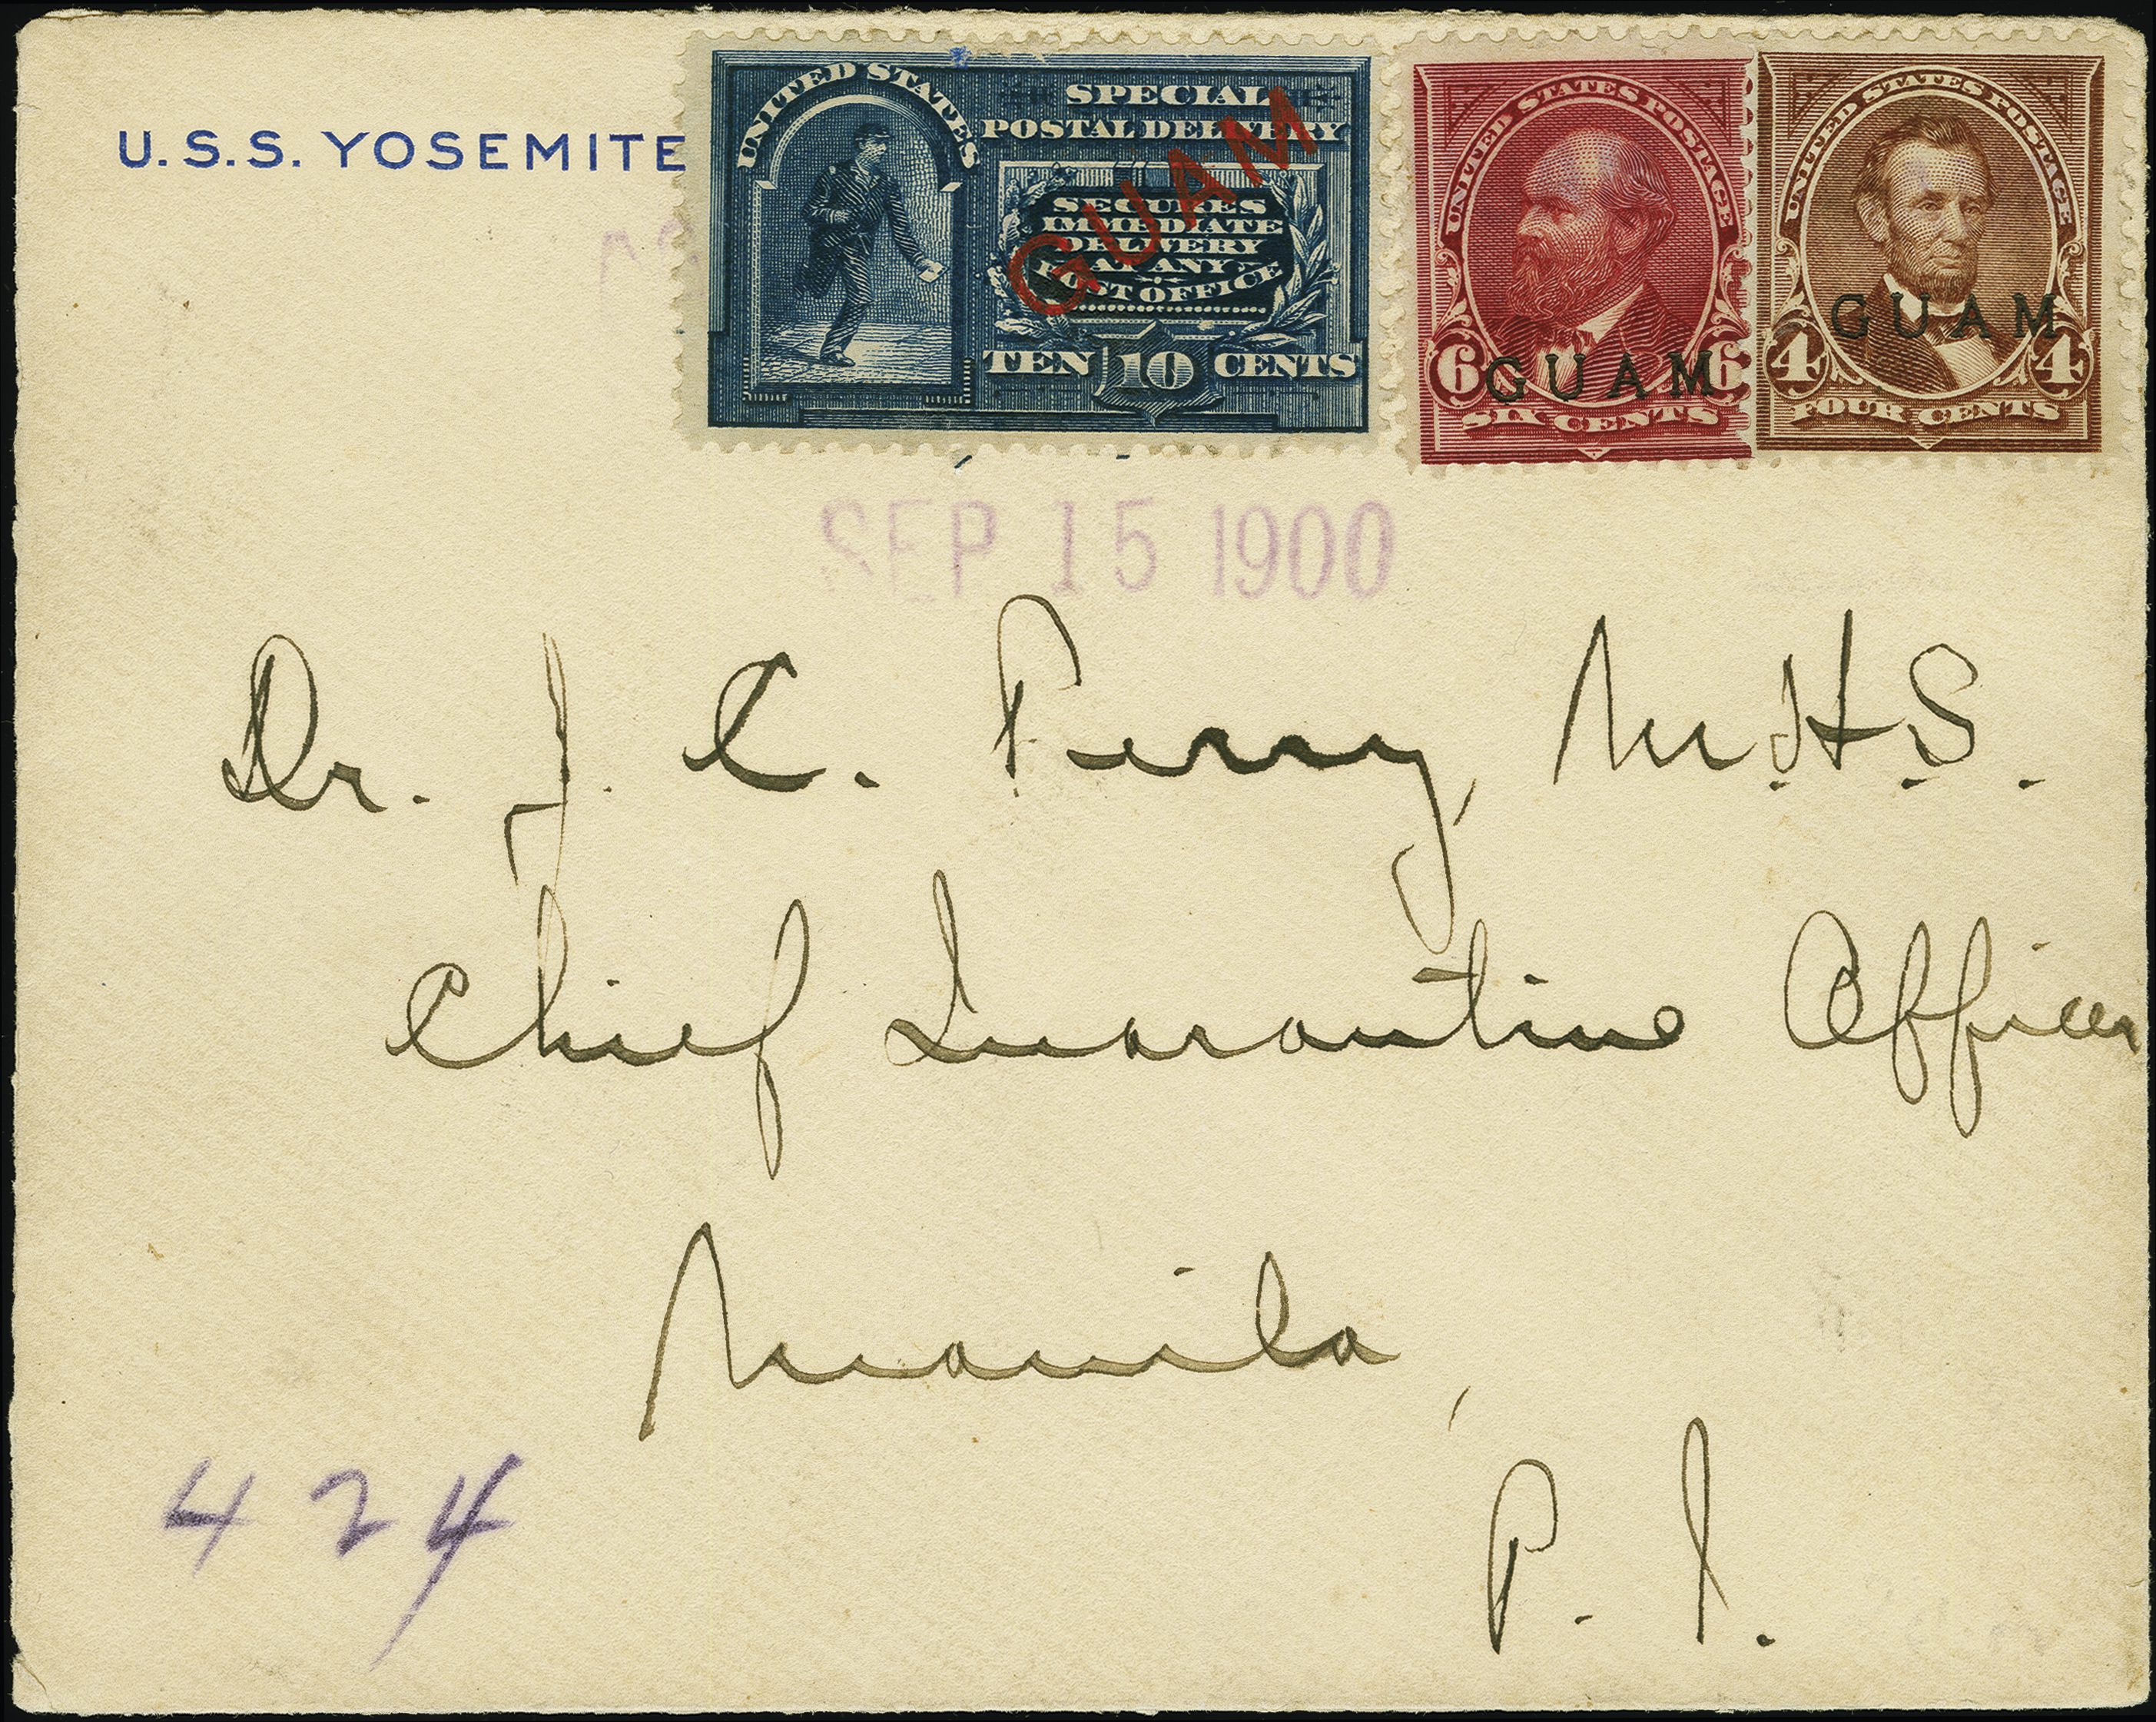 U.S.S. YOSEMITE
UNITED STATES
SPECIAL
POSTAL DELIVERY
SECURES
IMMEDIATE
DELIVERY
AT ANY
POST OFFICE
TEN 10 CENTS
GUAM
UNITED STATES POSTAGE
6 6
GUAM
SIX CENTS
UNITED STATES POSTAGE
GUAM
4 4
FOUR CENTS
SEP 15 1900
Dr. J. C. Perry, M.H.S.
Chief Quarantine Officer
Manila,
P. I.
424